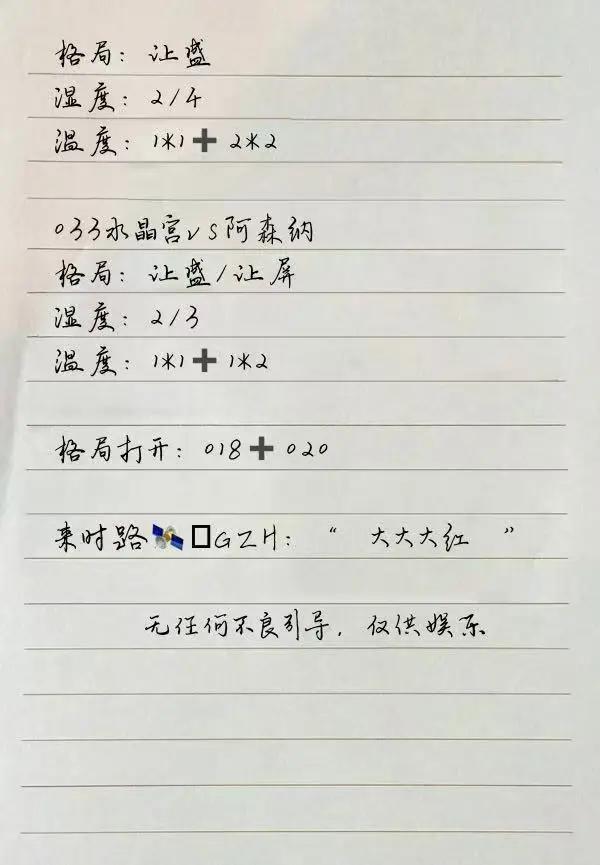 格局：让盛
湿度：2/4
温度：1*1➕2*2
033水晶宫vs阿森纳
格局：让盛/让屏
湿度：2/3
温度：1*1➕1*2
格局打开：018➕020
来时路🛰️□GZH：“ 大大大红 ”
无任何不良引导，仅供娱乐